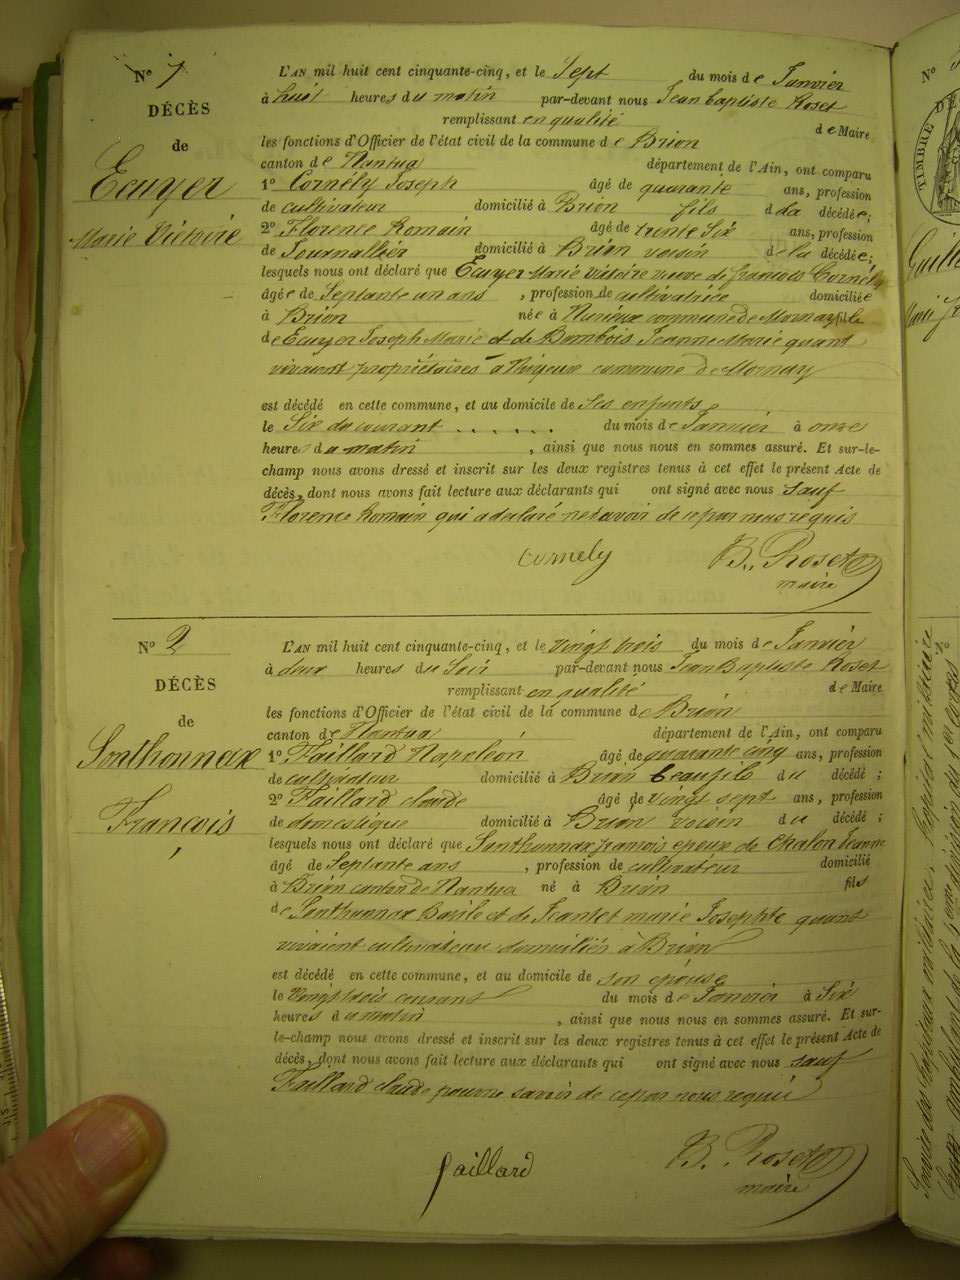 N° 1
DÉCÈS
de
Ecuyer
Marie Victoire
L'AN mil huit cent cinquante-cinq, et le Sept du mois de Janvier
à huit heures du matin par-devant nous Jean Baptiste Roset
remplissant en qualité de Maire
les fonctions d'Officier de l'état civil de la commune de Brion
canton de Nantua département de l'Ain, ont comparu
1° Cornély Joseph âgé de quarante ans, profession
de cultivateur domicilié à Brion fils de la décédée;
2° Florence Romain âgé de trente Six ans, profession
de Journallier domicilié à Brion voisin de la décédée;
lesquels nous ont déclaré que Ecuyer Marie Victoire veuve de françois Cornély
âgée de Septante un ans, profession de cultivatrice domiciliée
à Brion née à commune de Mornay fille
de Ecuyer Joseph Marie et de Jeanne Marie quant
vivaient propriétaires à commune de Mornay
est décédé en cette commune, et au domicile de Ses enfants
le Six du courant . . . . . . du mois de Janvier à onze
heures du matin, ainsi que nous nous en sommes assuré. Et sur-le-
champ nous avons dressé et inscrit sur les deux registres tenus à cet effet le présent Acte de
décès, dont nous avons fait lecture aux déclarants qui ont signé avec nous sauf
Florence Romain qui a déclaré ne savoir de ce par nous requis
Cornely B. Roset
maire
N° 2
DÉCÈS
de
Sonthonnax
François
L'AN mil huit cent cinquante-cinq, et le vingt trois du mois de Janvier
à deux heures du Soir par-devant nous Jean Baptiste Roset
remplissant en qualité de Maire
les fonctions d'Officier de l'état civil de la commune de Brion
canton de Nantua département de l'Ain, ont comparu
1° Faillard Napoléon âgé de quarante cinq ans, profession
de cultivateur domicilié à Brion beaufils du décédé;
2° Faillard claude âgé de vingt sept ans, profession
de domestique domicilié à Brion voisin du décédé;
lesquels nous ont déclaré que Sonthonnax francois epoux de Chalon Jeanne
âgé de Septante ans, profession de cultivateur domicilié
à Brion canton de Nantua né à Brion fils
de Sonthonnax Basile et de Jeantet marie Josephte quant
vivaient cultivateurs domiciliés à Brion
est décédé en cette commune, et au domicile de son épouse
le Vingt trois courant du mois de Janvier à Six
heures du matin, ainsi que nous nous en sommes assuré. Et sur-
le-champ nous avons dressé et inscrit sur les deux registres tenus à cet effet le présent Acte de
décès, dont nous avons fait lecture aux déclarants qui ont signé avec nous sauf
Faillard claude pour ne savoir de ce par nous requis
faillard B. Roset
maire
N°
TIMBRE